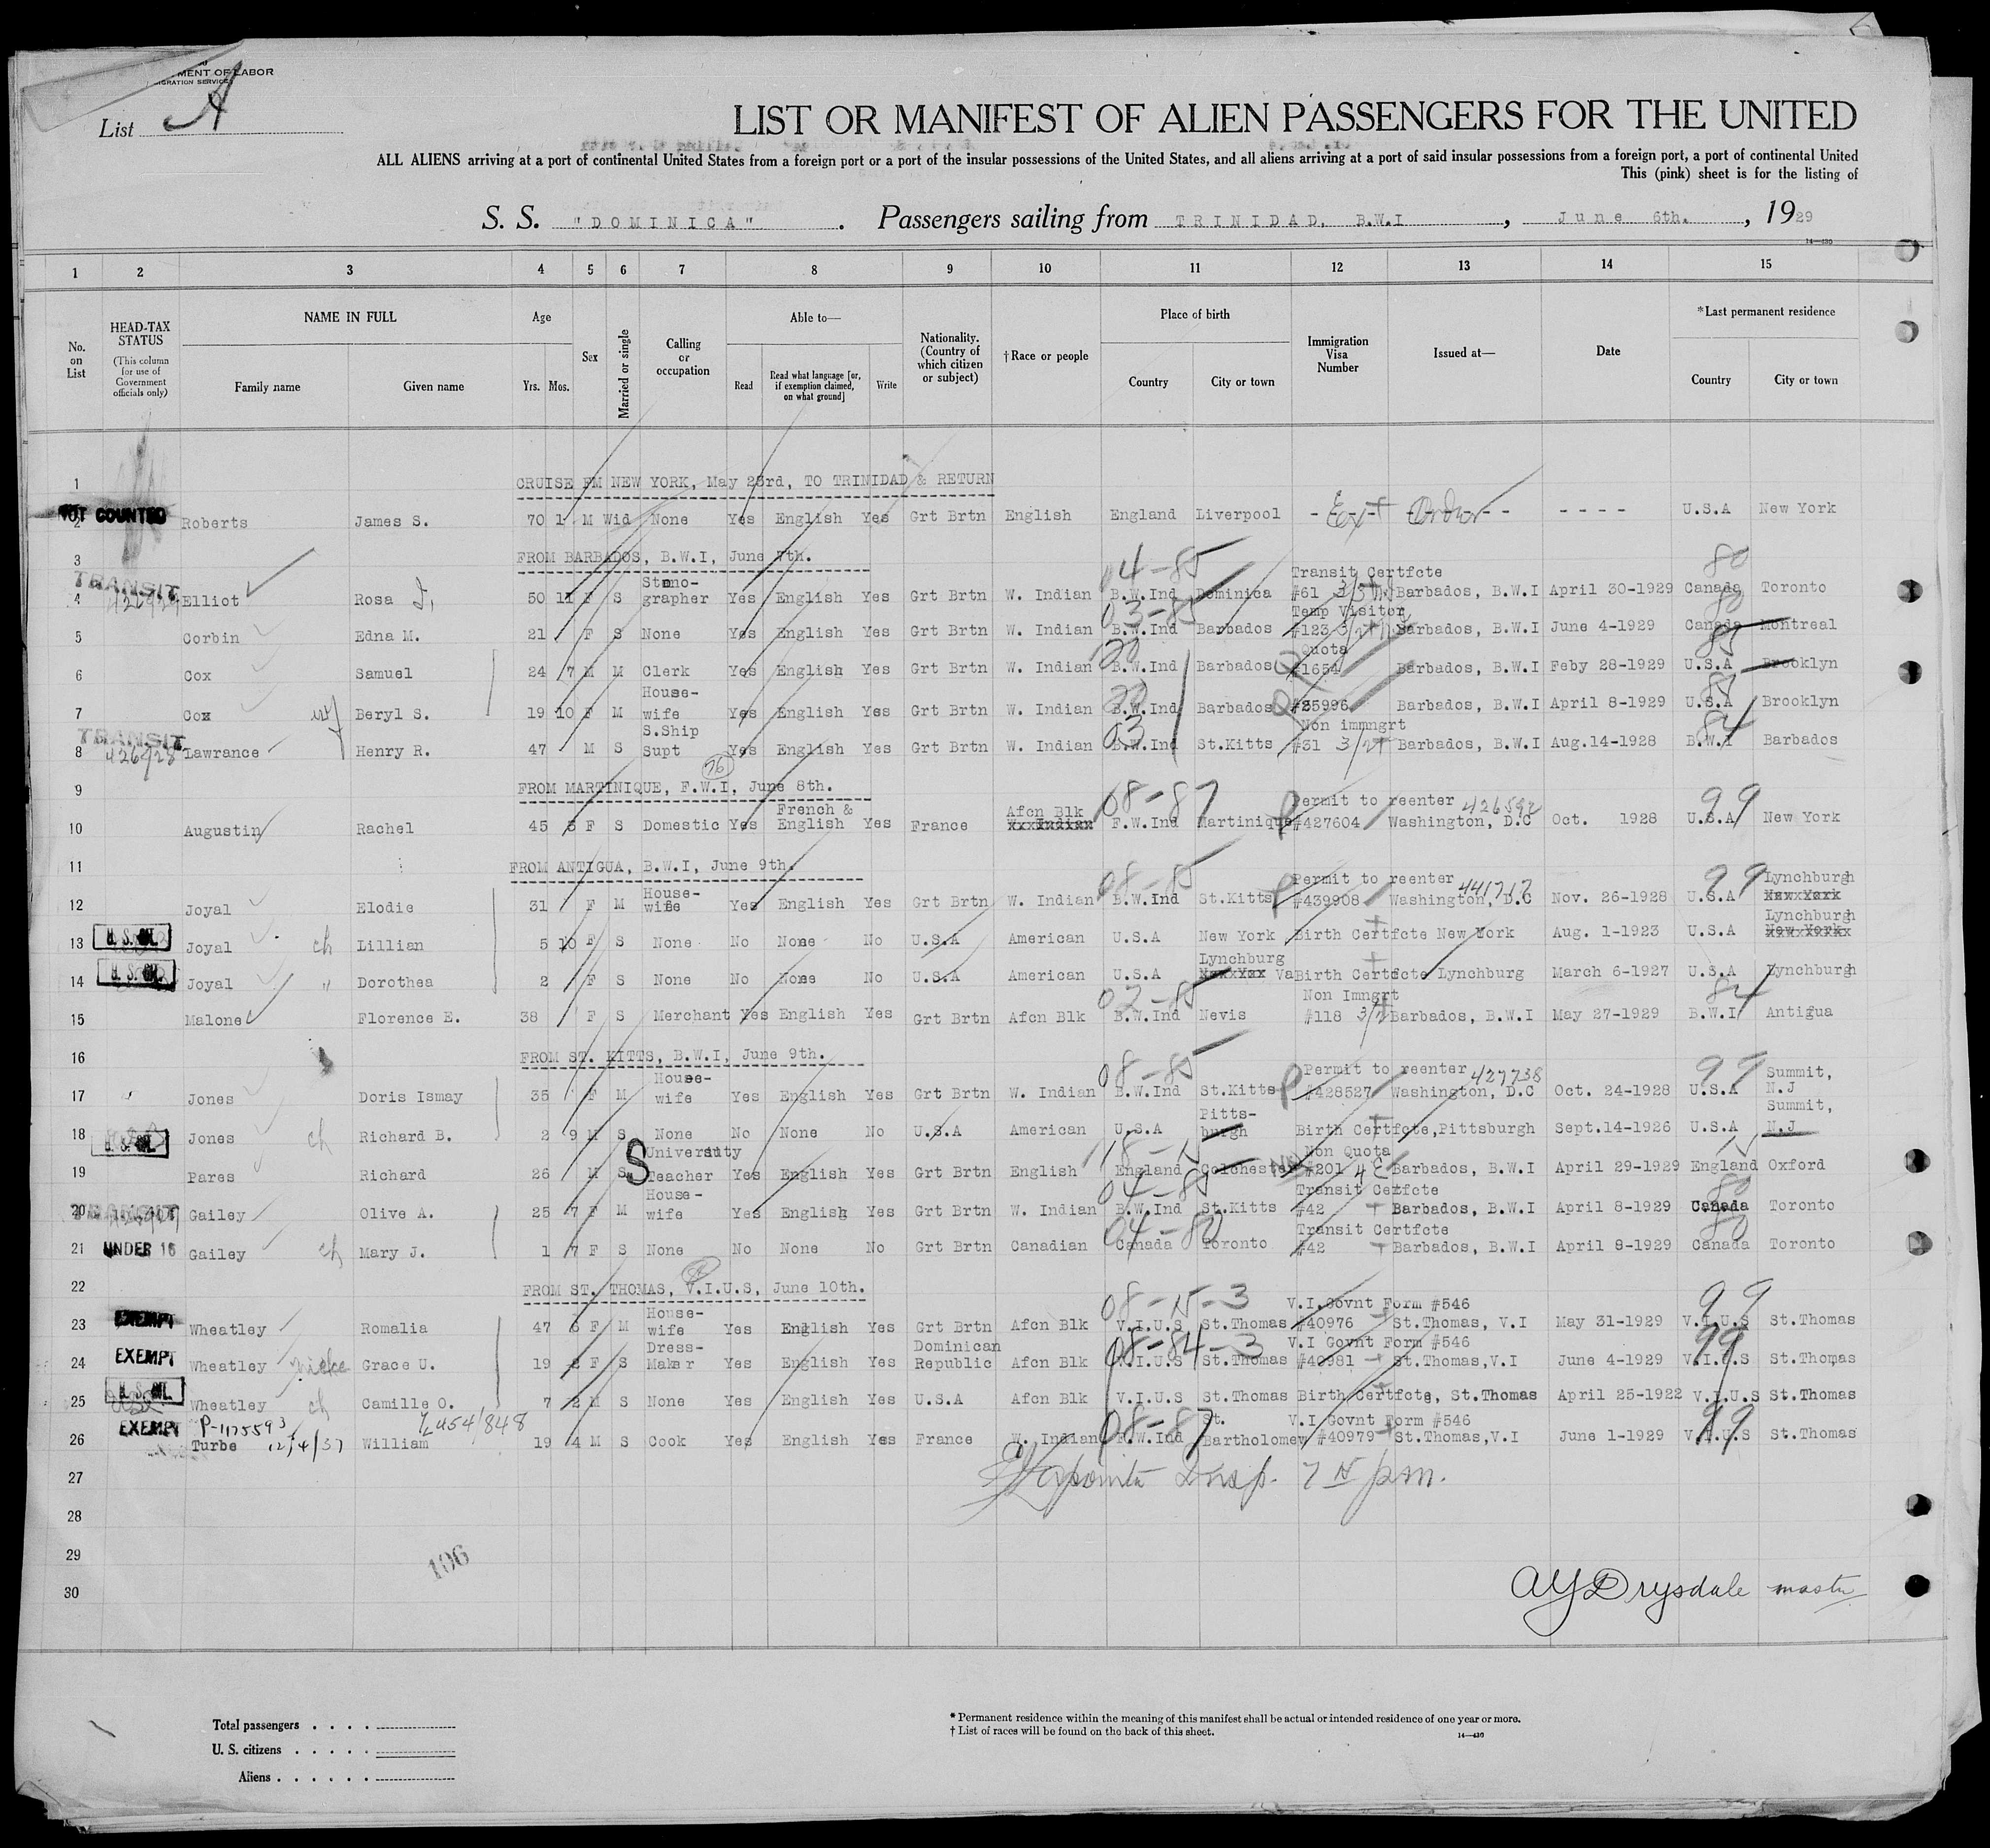 MENT OF LABOR
IGRATION SERVICE
List A
LIST OR MANIFEST OF ALIEN PASSENGERS FOR THE UNITED
ALL ALIENS arriving at a port of continental United States from a foreign port or a port of the insular possessions of the United States, and all aliens arriving at a port of said insular possessions from a foreign port, a port of continental United
This (pink) sheet is for the listing of
S. S. "DOMINICA". Passengers sailing from TRINIDAD, B.W.I, June 6th., 1929
14—430
1 2 3 4 5 6 7 8 9 10 11 12 13 14 15
No. on List HEAD-TAX STATUS (This column for use of Government officials only) NAME IN FULL Family name Given name Age Yrs. Mos. Sex Married or single Calling or occupation Able to— Read Read what language [or, if exemption claimed, on what ground] Write Nationality. (Country of which citizen or subject) †Race or people Place of birth Country City or town Immigration Visa Number Issued at— Date *Last permanent residence Country City or town
1 CRUISE FM NEW YORK, May 23rd, TO TRINIDAD & RETURN
2 NOT COUNTED Roberts James S. 70 1 M Wid None Yes English Yes Grt Brtn English England Liverpool - - - - - - - - - - - - U.S.A New York
3 FROM BARBADOS, B.W.I, June 7th. 04-85 80
4 TRANSIT Elliot Rosa I, 50 11 F S Steno-grapher Yes English Yes Grt Brtn W. Indian B.W.Ind Dominica Transit Certfcte #61 Barbados, B.W.I April 30-1929 Canada Toronto
5 Corbin Edna M. 21 F S None Yes English Yes Grt Brtn W. Indian 03-85 B.W.Ind Barbados Temp Visitor #123 Barbados, B.W.I June 4-1929 80 Canada Montreal
6 Cox Samuel 24 7 M M Clerk Yes English Yes Grt Brtn W. Indian B.W.Ind Barbados Quota #1654 Barbados, B.W.I Feby 28-1929 U.S.A Brooklyn
7 Cox wf Beryl S. 19 10 F M House-wife Yes English Yes Grt Brtn W. Indian B.W.Ind Barbados Barbados, B.W.I April 8-1929 U.S.A Brooklyn
8 TRANSIT Lawrance Henry R. 47 M S S.Ship Supt Yes English Yes Grt Brtn W. Indian 03 B.W.Ind St.Kitts Non immngrt #31 Barbados, B.W.I Aug.14-1928 84 B.W.I Barbados
9 76 FROM MARTINIQUE, F.W.I, June 8th. 08-87 99
10 Augustin Rachel 45 5 F S Domestic Yes French & English Yes France Afcn Blk F.W.Ind Martinique Permit to reenter 426592 #427604 Washington, D.C Oct. 1928 U.S.A New York
11 FROM ANTIGUA, B.W.I, June 9th. 08-85 99
12 Joyal Elodie 31 F M House-wife Yes English Yes Grt Brtn W. Indian B.W.Ind St.Kitts Permit to reenter #439908 Washington, D.C Nov. 26-1928 U.S.A Lynchburgh
13 U.S. CIT. Joyal ch Lillian 5 10 F S None No None No U.S.A American U.S.A New York Birth Certfcte New York Aug. 1-1923 U.S.A Lynchburgh
14 U.S. CIT. Joyal " Dorothea 2 F S None No None No U.S.A American U.S.A Lynchburg Va Birth Certfcte Lynchburg March 6-1927 U.S.A Lynchburgh
15 Malone Florence E. 38 F S Merchant Yes English Yes Grt Brtn Afcn Blk 02-85 B.W.Ind Nevis Non Imngrt #118 Barbados, B.W.I May 27-1929 84 B.W.I Antigua
16 FROM ST. KITTS, B.W.I, June 9th. 08-85 99
17 Jones Doris Ismay 35 F M House-wife Yes English Yes Grt Brtn W. Indian B.W.Ind St.Kitts Permit to reenter 427738 #428527 Washington, D.C Oct. 24-1928 U.S.A Summit, N.J
18 U.S. CIT. Jones ch Richard B. 2 9 M S None No None No U.S.A American U.S.A Pitts-burgh Birth Certfcte,Pittsburgh Sept.14-1926 U.S.A Summit, N.J
19 Pares Richard 26 M S University Teacher Yes English Yes Grt Brtn English 18-15 England Colchester Non Quota #201 4E Barbados, B.W.I April 29-1929 15 England Oxford
20 TRANSIT Gailey Olive A. 25 7 F M House-wife Yes English Yes Grt Brtn W. Indian 04-85 B.W.Ind St.Kitts Transit Certfcte #42 Barbados, B.W.I April 8-1929 80 Canada Toronto
21 UNDER 16 Gailey ch Mary J. 1 7 F S None No None No Grt Brtn Canadian 04-80 Canada Toronto Transit Certfcte #42 Barbados, B.W.I April 8-1929 80 Canada Toronto
22 FROM ST. THOMAS, V.I.U.S, June 10th. 08-15-3 99
23 EXEMPT Wheatley Romalia 47 6 F M House-wife Yes English Yes Grt Brtn Afcn Blk V.I.U.S St.Thomas V.I.Govnt Form #546 #40976 St.Thomas, V.I May 31-1929 V.I.U.S St.Thomas
24 EXEMPT Wheatley niece Grace U. 19 2 F S Dress-Maker Yes English Yes Dominican Republic Afcn Blk 08-84-3 V.I.U.S St.Thomas V.I Govnt Form #546 #40981 St.Thomas,V.I June 4-1929 99 V.I.U.S St.Thomas
25 U.S. CIT. Wheatley ch Camille O. 7 2 M S None Yes English Yes U.S.A Afcn Blk V.I.U.S St.Thomas Birth Certfcte, St.Thomas April 25-1922 V.I.U.S St.Thomas
26 EXEMPT P-1175593 12/4/37 Turbe William 19 4 M S Cook Yes English Yes France W. Indian 08-87 F.W.Ind St. Bartholomew V.I Govnt Form #546 #40979 St.Thomas,V.I June 1-1929 99 V.I.U.S St.Thomas
27
28
29 106
30 AY Drysdale master
Total passengers . . . .
U. S. citizens . . . . .
Aliens . . . . . .
* Permanent residence within the meaning of this manifest shall be actual or intended residence of one year or more.
† List of races will be found on the back of this sheet.
14—430